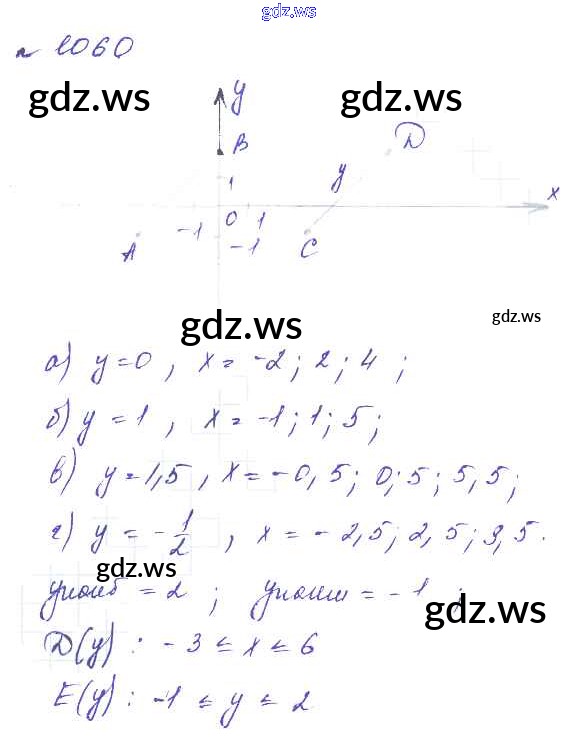 gdz.ws
№ 1060
gdz.ws gdz.ws
y
B
D
1 y
x
-1 0 1
A -1 C
gdz.ws
gdz.ws
а) y = 0 , x = -2 ; 2 ; 4 ;
б) y = 1 , x = -1 ; 1 ; 5 ;
в) y = 1,5 , x = -0,5 ; 0,5 ; 5,5 ;
г) y = -1/2 , x = -2,5 ; 2,5 ; 3,5.
gdz.ws
yнаиб = 2 ; yнаим = -1 ;
gdz.ws
D(y) : -3 ≤ x ≤ 6
E(y) : -1 ≤ y ≤ 2